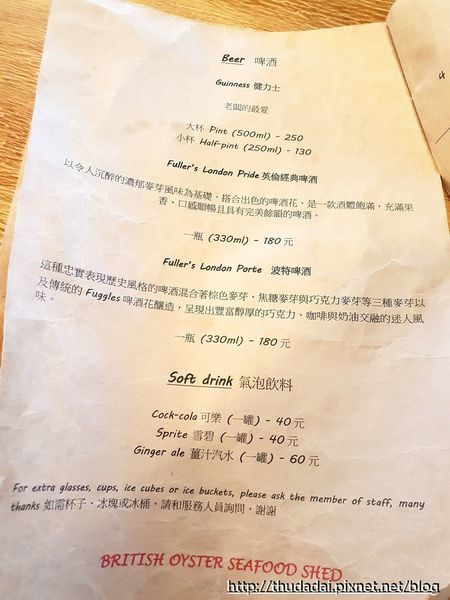 Beer 啤酒
Guinness 健力士
老闆的最愛
大杯 Pint (500ml) - 250
小杯 Half-pint (250ml) - 130
Fuller's London Pride 英倫經典啤酒
以令人沉醉的濃郁麥芽風味為基礎，搭合出色的啤酒花，是一款酒體飽滿，充滿果
香、口感順暢且具有完美餘韻的啤酒。
一瓶 (330ml) - 180 元
Fuller's London Porte 波特啤酒
這種忠實表現歷史風格的啤酒混合著棕色麥芽、焦糖麥芽與巧克力麥芽等三種麥芽以
及傳統的 Fuggles 啤酒花釀造，呈現出豐富醇厚的巧克力、咖啡與奶油交融的迷人風
味。
一瓶 (330ml) - 180 元
Soft drink 氣泡飲料
Cock-cola 可樂 (一罐) - 40 元
Sprite 雪碧 (一罐) - 40 元
Ginger ale 薑汁汽水 (一罐) - 60 元
For extra glasses, cups, ice cubes or ice buckets, please ask the member of staff, many
thanks 如需杯子、冰塊或冰桶，請和服務人員詢問，謝謝
BRITISH OYSTER SEAFOOD SHED
http://thudadai.pixnet.net/blog